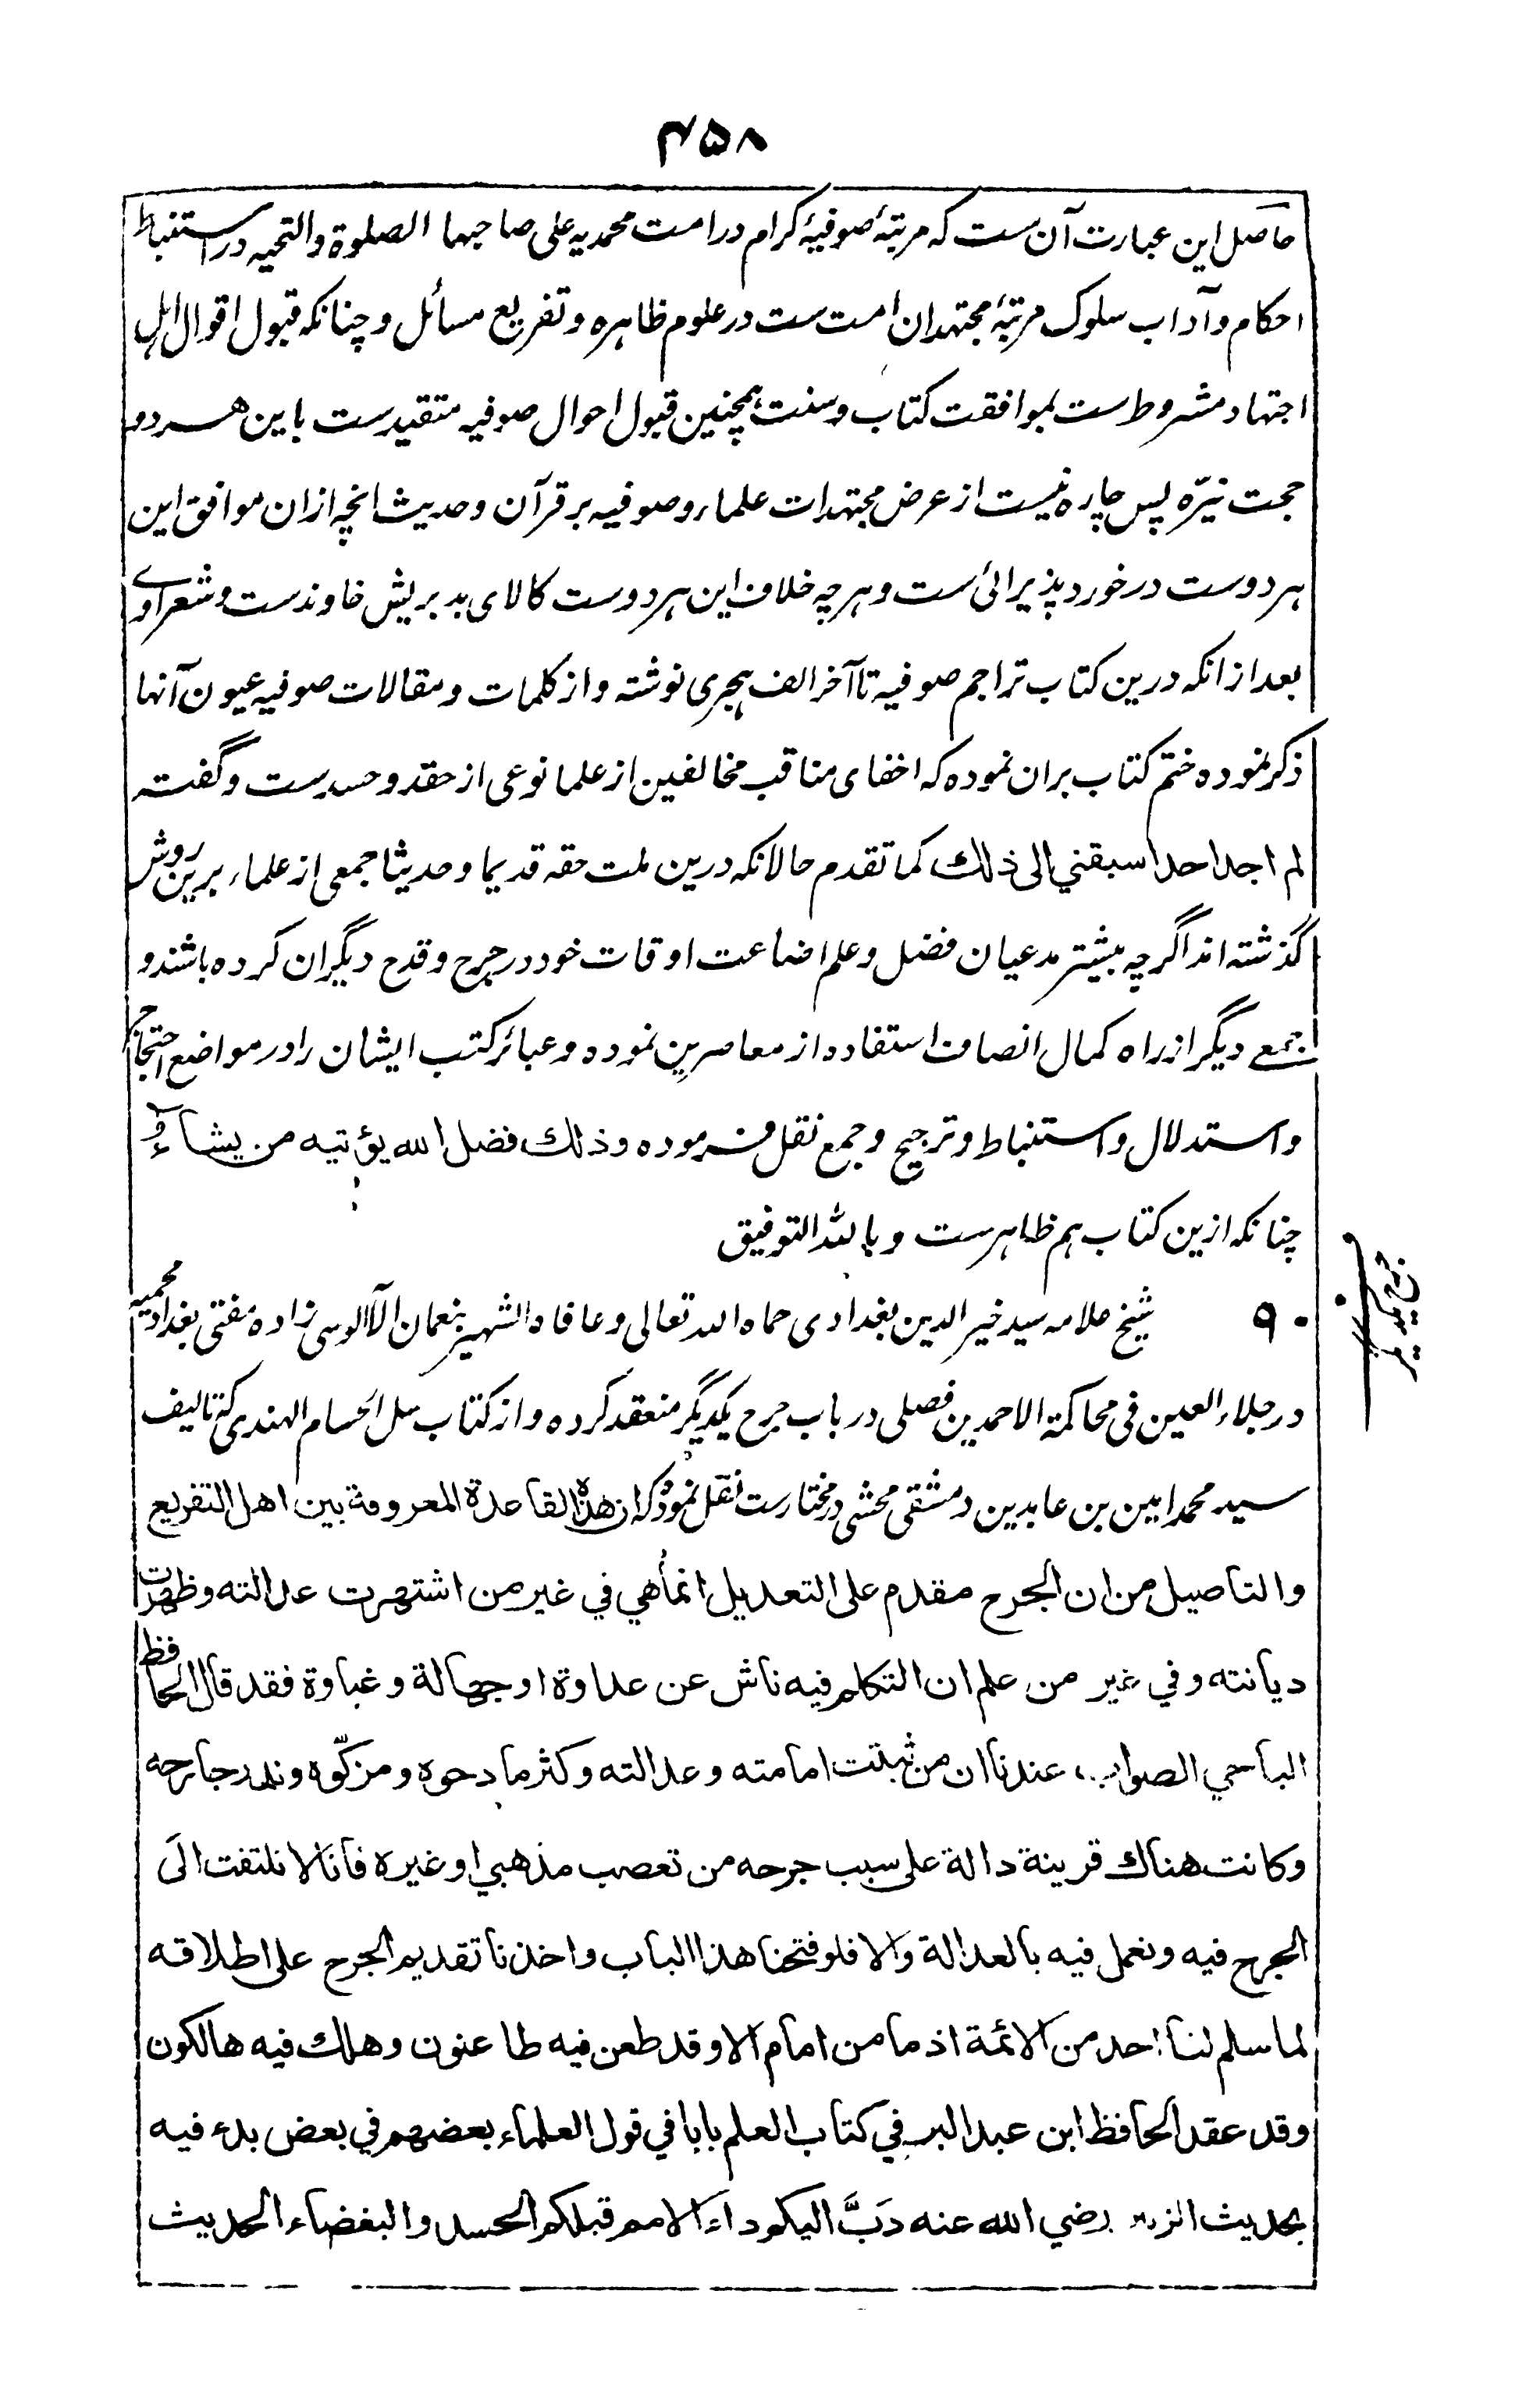 ۴۵۸
حاصل این عبارت آن ست که مرتبۂ صوفیۂ کرام در امت محمدیه علی صاحبها الصلوة والتحیه در استنباط
احکام و آداب سلوک مرتبۂ مجتهدان امت ست در علوم ظاهره و تفریع مسائل و چنانکه قبول اقوال اهل
اجتهاد مشروط ست بموافقت کتاب و سنت همچنین قبول احوال صوفیه متقید ست باین هر دو
حجت نیّره پس چاره نیست از عرض مجتهدات علماء و صوفیه بر قرآن و حدیث انچه ازان موافق این
هر دوست درخورد پذیرائی ست و هرچه خلاف این هر دوست کالای بد بریش خاوندست و شعراوے
بعد ازانکه درین کتاب تراجم صوفیه تا آخر الف هجری نوشته و از کلمات و مقالات صوفیه عیون آنها
ذکر نموده ختم کتاب بران نموده که اخفای مناقب مخالفین از علما نوعی از حقد و حسد ست و گفته
لم اجد احدا سبقني الى ذلك کما تقدم حالانکه درین ملت حقه قدیما و حدیثا جمعی از علماء برین روش
گذشته اند اگرچه بیشتر مدعیان فضل و علم اضاعت اوقات خود در جرح و قدح دیگران کرده باشند و
جمعے دیگر از راه کمال انصاف استفاده از معاصرین نموده و عبائر کتب ایشان را در مواضع احتجاج
و استدلال و استنباط و ترجیح و جمع نقل فرموده وذلك فضل الله يؤتيه من يشاء و
چنانکه ازین کتاب هم ظاهرست و بالله التوفیق
۹۰ شیخ علامه سید خیر الدین بغدادی حماه الله تعالی و عافاه الشهیر بنعمان الآلوسی زاده مفتی بغداد محمیه
در جلاء العینین فی محاکمة الاحمدین فصلی در باب جرح یکدیگر منعقد کرده و از کتاب سل الحسام الهندی که تالیف
سید محمد امین بن عابدین دمشقی محشی در مختارست نقل نموده که ان هذه القاعدة المعروفة بين اهل التفريع
والتاصيل من ان الجرح مقدم على التعديل انما هي في غير من اشتهرت عدالته وظهرت
ديانته وفي غير من علم ان التكلم فيه ناش عن عداوة او جهالة وغباوة فقد قال الحافظ
الباجي الصواب عندنا ان من ثبتت امامته وعدالته وكثر مادحوه ومزكّوه وندر جارحه
وكانت هناك قرينة دالة على سبب جرحه من تعصب مذهبي او غيره فانا لا نلتفت الى
الجرح فيه ونعمل فيه بالعدالة والا فلو فتحنا هذا الباب واخذنا تقديم الجرح على اطلاقه
لما سلم لنا احد من الائمة اذ ما من امام الا وقد طعن فيه طاعنون وهلك فيه هالكون
وقد عقد الحافظ ابن عبد البر في كتاب العلم بابا في قول العلماء بعضهم في بعض بدء فيه
بحديث الزبير رضي الله عنه دَبَّ اليكم داء الامم قبلكم الحسد والبغضاء الحديث